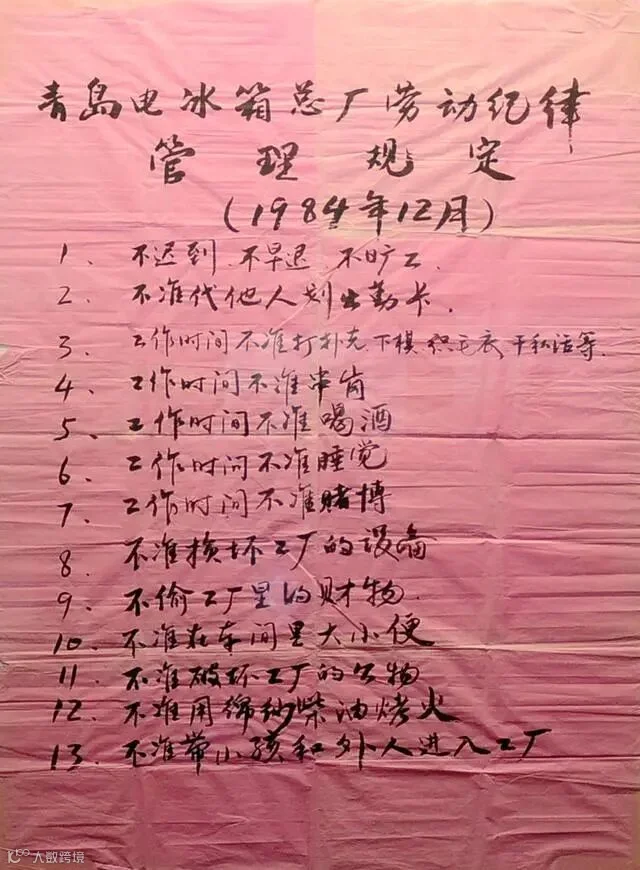 青岛电冰箱总厂劳动纪律
管理规定
(1984年12月)
1、不迟到 不早退 不旷工.
2、不准代他人划出勤卡.
3、工作时间不准打扑克、下棋、织毛衣、干私活等.
4、工作时间不准串岗
5、工作时间不准喝酒
6、工作时间不准睡觉
7、工作时间不准赌博
8、不准损坏工厂的设备
9、不偷工厂里的财物.
10、不准在车间里大小便
11、不准破坏工厂的公物
12、不准用棉纱柴油烤火
13、不准带小孩和外人进入工厂
大数跨境